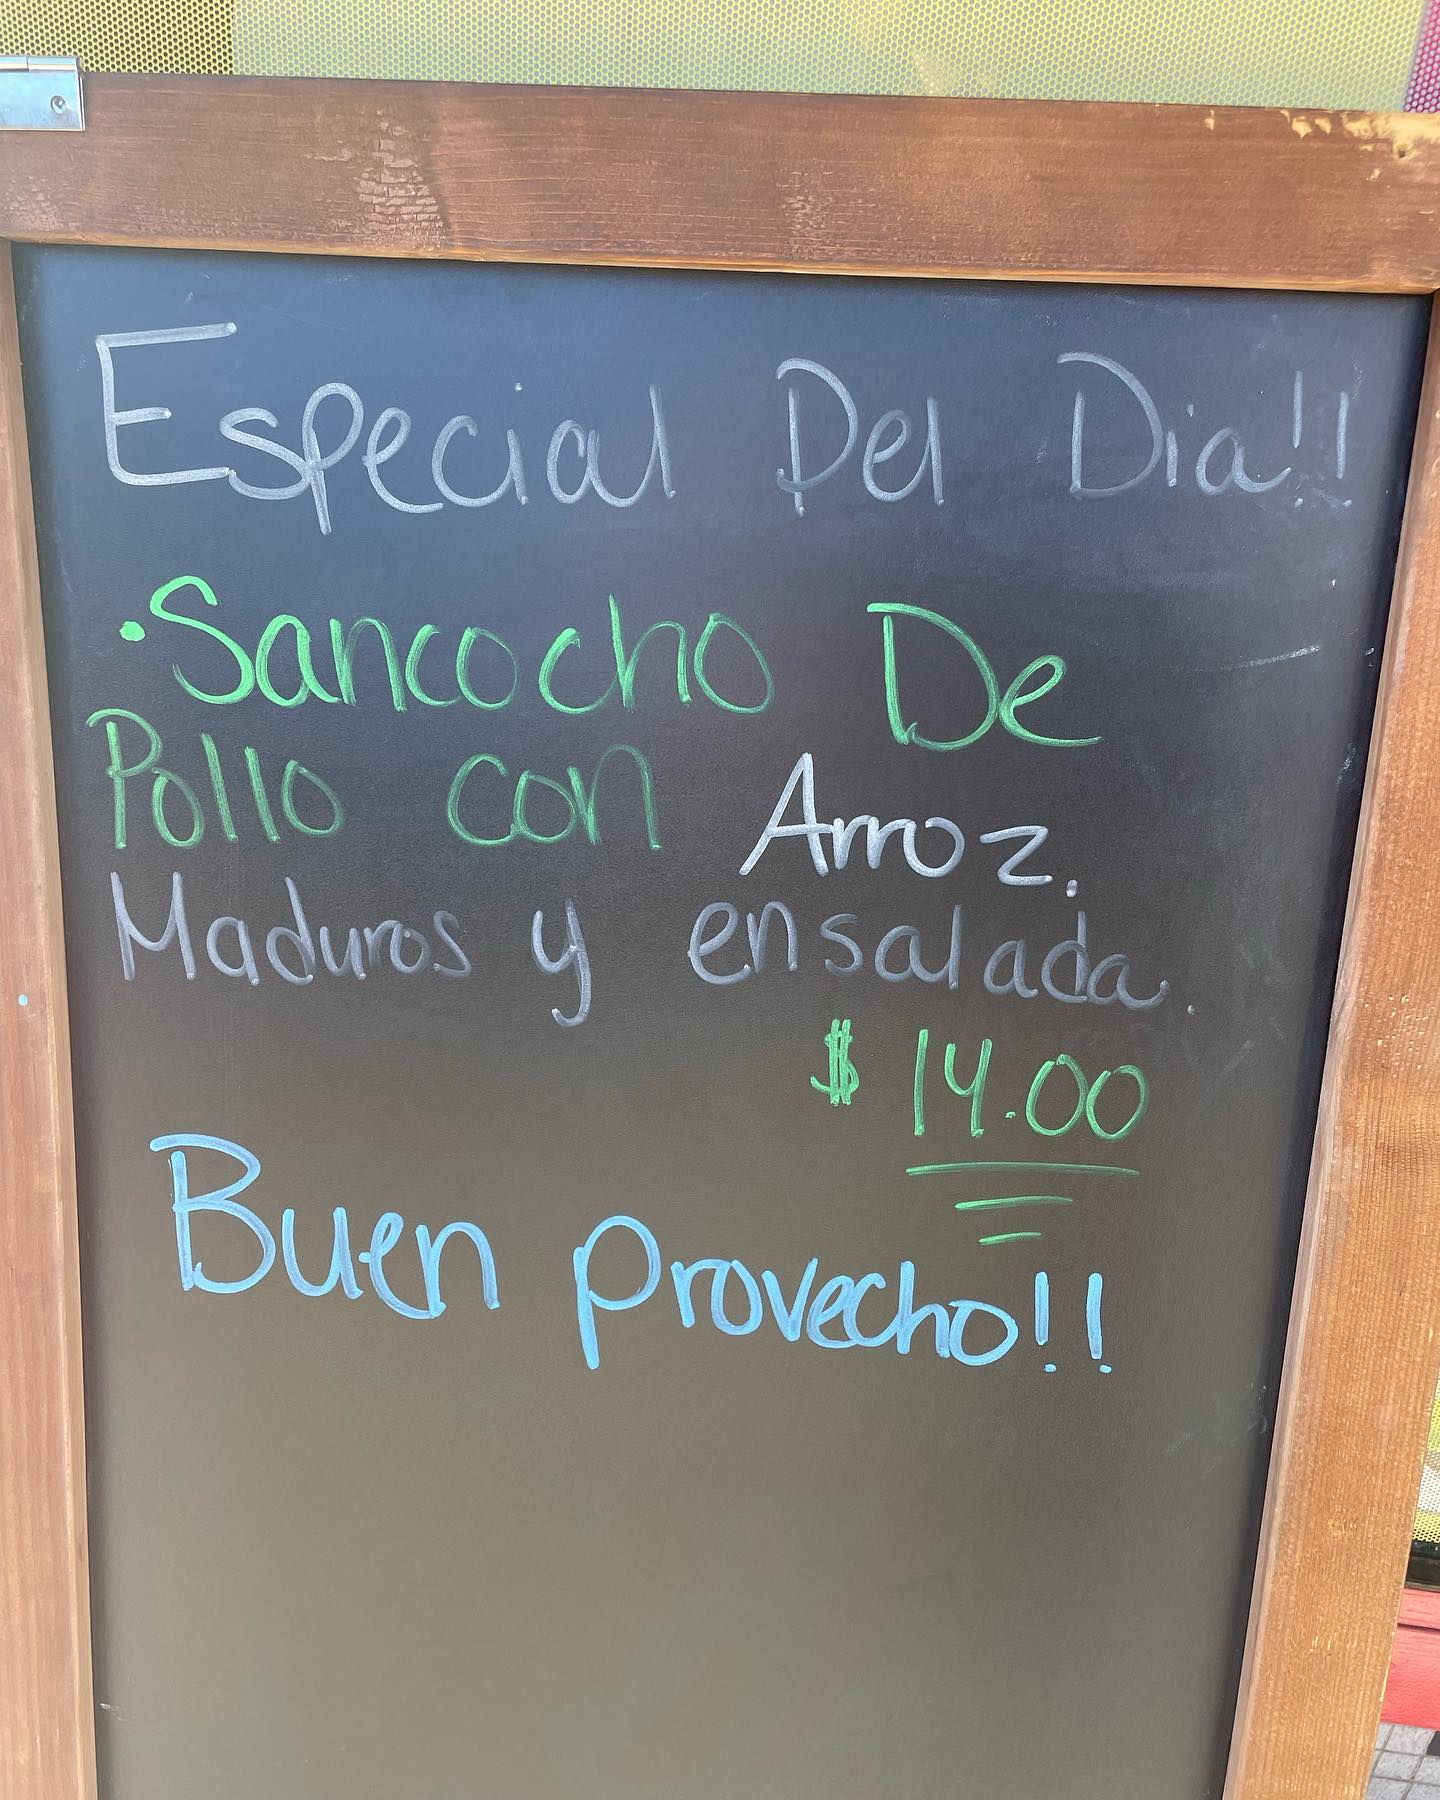 Especial Del Dia!!
•Sancocho De
Pollo con Arroz.
Maduros y ensalada.
$14.00
Buen provecho!!